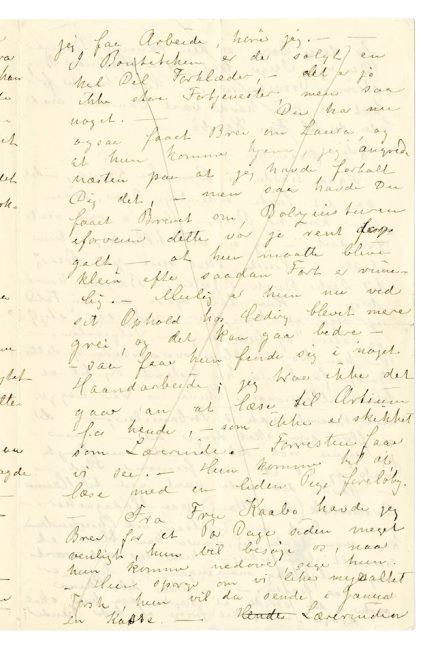 jeg faa Arbeide, hører jeg. — —
I Boutikken er de solgt en
hel Del Forklæder, — det er jo
ikke stor Fortjeneste, men saa
noget. — Du har nu
ogsaa faaet Brev om Laura, og
at hun kommer hjem, jeg angrede
næsten paa at jeg havde fortalt
Dig det, — men saa havde Du
faaet Brevet om
iforveien dette var jo rent
galt — at hun maatte blive
klein efter saadan Fart er rime-
lig. — Mulig er hun nu ved
sit Ophold hos Hedvig blevet mere
grei, og det kan gaa bedre —
— saa faar hun finde sig i noget
Haandarbeide; jeg tror ikke det
gaar an at læse til Artium
for hende, — som ikke er skikket
som Lærerinde. — Forresten faar
vi see. — Hun kommer til at
læse med en liden Pige foreløbig.
— Fra Frue Kaabo havde jeg
Brev for et Par Dage siden meget
venligt, hun vil besøge os, naar
hun kommer nedover, siger hun.
— Hun spørger om vi liker nysaltet
Torsk, hun vil da sende i Januar
en Kasse. — Lærerinden